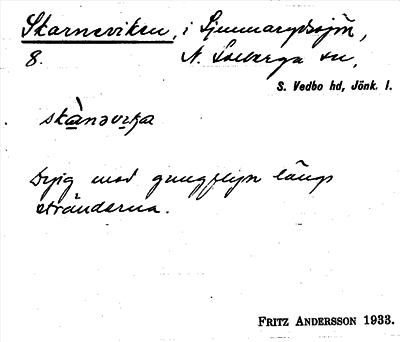 Skarneviken, i Ljunnargasjön,
8. N. Solberga sn,
S. Vedbo hd, Jönk. l.
skànəvɪka
Dyig med gungflyn längs
stränderna.
FRITZ ANDERSSON 1933.